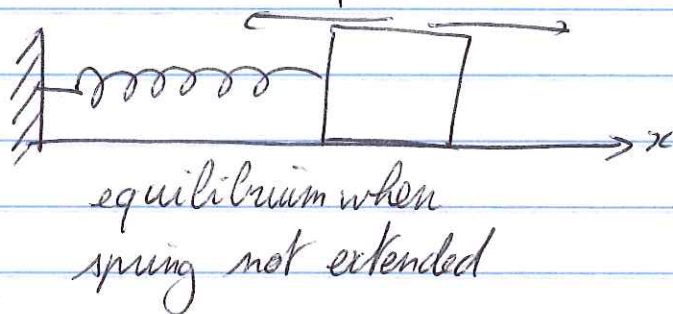 x
equilibrium when
spring not extended